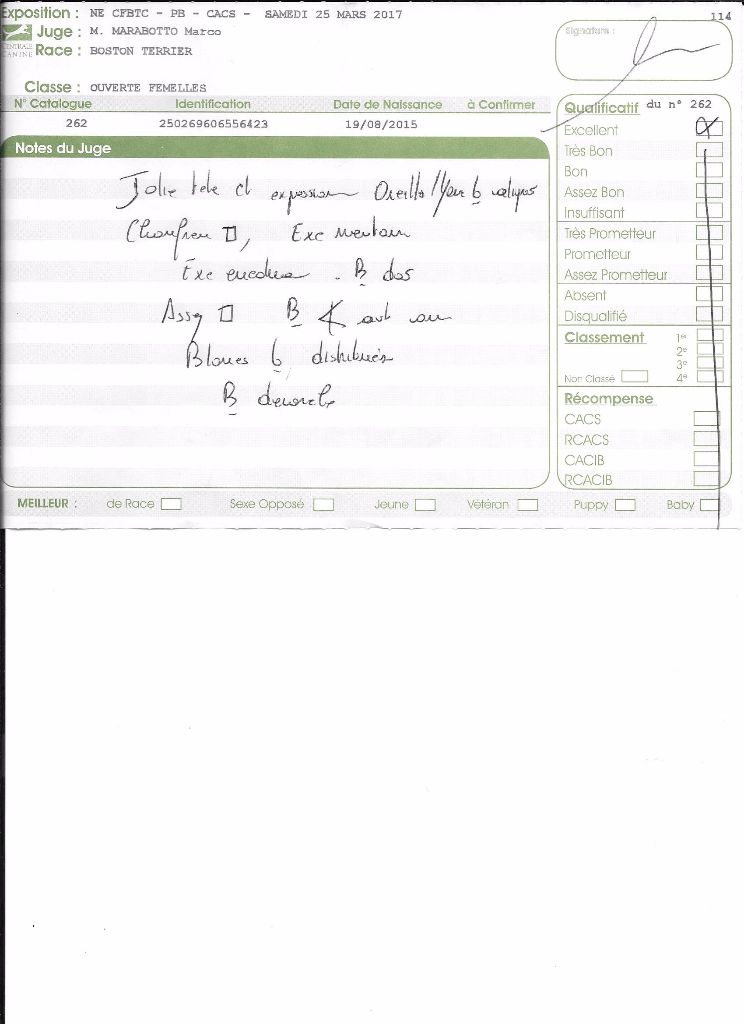 Exposition : NE CFBTC - PB - CACS - SAMEDI 25 MARS 2017
114
Juge : M. MARABOTTO Marco
CENTRALE CANINE
Race : BOSTON TERRIER
Signature :
Classe : OUVERTE FEMELLES
N° Catalogue Identification Date de Naissance à Confirmer
262 250269606556423 19/08/2015
Notes du Juge
Jolie tete et expression Oreille/Yeux b
Chanfrein □, Exc menton
Exc encolure . B dos
Assez □ B
Blancs b distribués
B démarche
Qualificatif du n° 262
Excellent
Très Bon
Bon
Assez Bon
Insuffisant
Très Prometteur
Prometteur
Assez Prometteur
Absent
Disqualifié
Classement 1er
2e
3e
Non Classé 4e
Récompense
CACS
RCACS
CACIB
RCACIB
MEILLEUR : de Race Sexe Opposé Jeune Vétéran Puppy Baby